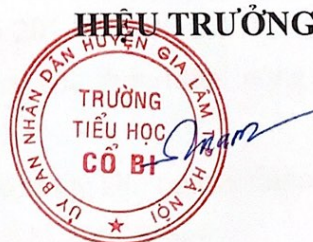 HIỆU TRƯỞNG
ỦY BAN NHÂN DÂN HUYỆN GIA LÂM TP HÀ NỘI
TRƯỜNG
TIỂU HỌC
CỔ BI